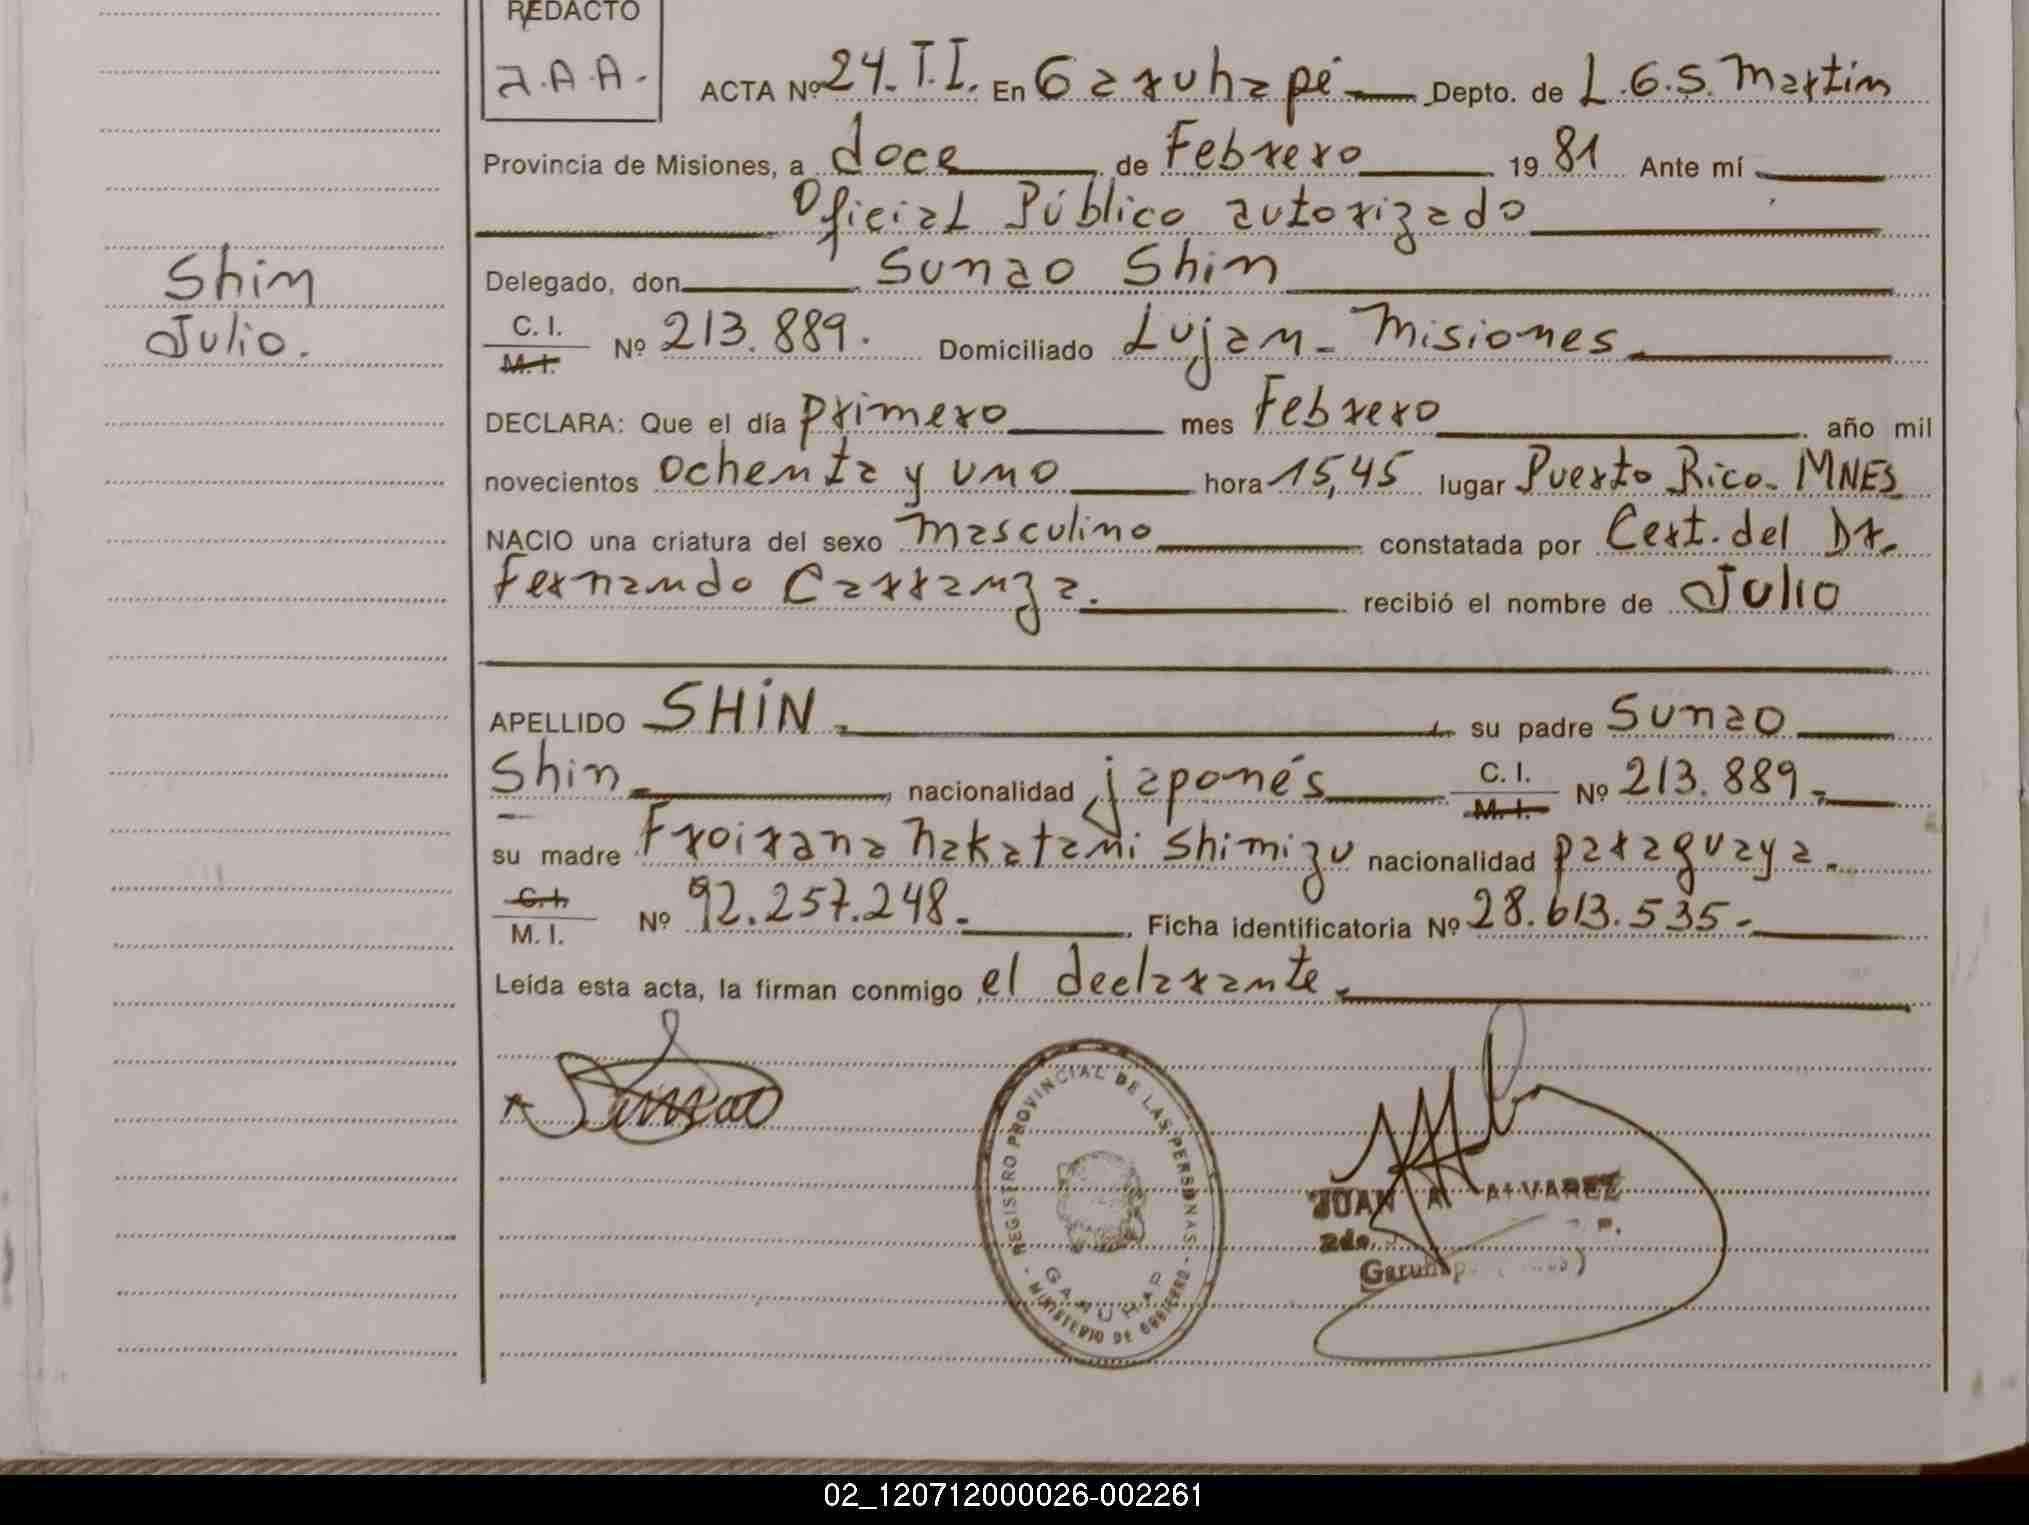 REDACTO
J.A.A.
ACTA Nº 24. T.I. En Garuhapé Depto. de L.G.S. Martin
Provincia de Misiones, a doce de Febrero 19 81 Ante mí
Oficial Público autorizado
Delegado, don Sunao Shin
Shin
Julio.
C. I.
M. I. Nº 213.889. Domiciliado Lujan - Misiones
DECLARA: Que el día primero mes Febrero año mil
novecientos ochenta y uno hora 15,45 lugar Puerto Rico. MNES
NACIO una criatura del sexo masculino constatada por Cert. del Dr.
Fernando Carranza. recibió el nombre de Julio
APELLIDO SHIN su padre Sunao
Shin nacionalidad japonés C. I.
M. I. Nº 213.889.
su madre Froirana Nakatani Shimizu nacionalidad paraguaya.
C. I.
M. I. Nº 92.257.248. Ficha identificatoria Nº 28.613.535.
Leída esta acta, la firman conmigo el declarante.
Sunao
REGISTRO PROVINCIAL DE LAS PERSONAS - MINISTERIO DE GOBIERNO -
GARUHAP
JUAN A. ALVAREZ
2do.
02_120712000026-002261